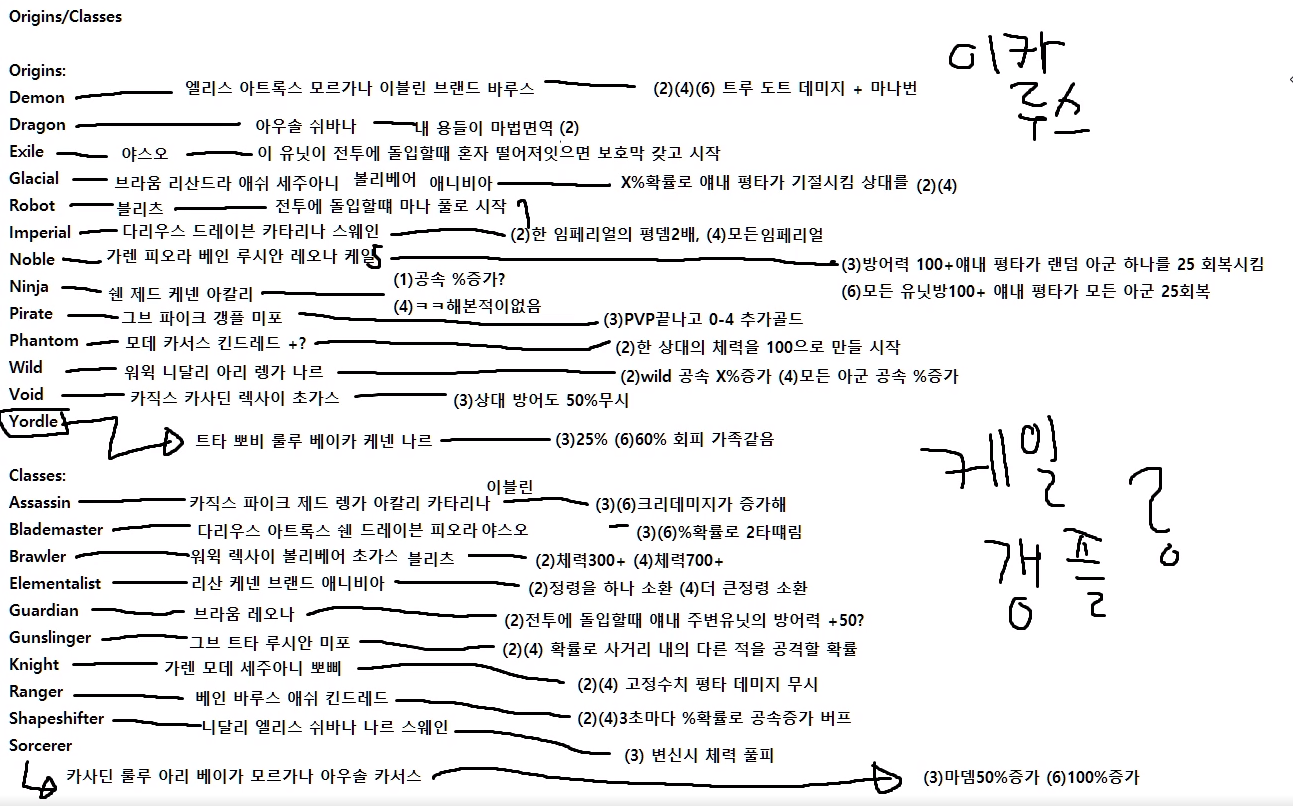 Origins/Classes
이카
루스
Origins:
Demon 엘리스 아트록스 모르가나 이블린 브랜드 바루스 (2)(4)(6) 트루 도트 데미지 + 마나번
Dragon 아우솔 쉬바나 내 용들이 마법면역 (2)
Exile 야스오 이 유닛이 전투에 돌입할때 혼자 떨어져잇으면 보호막 갖고 시작
Glacial 브라움 리산드라 애쉬 세주아니 볼리베어 애니비아 X%확률로 얘내 평타가 기절시킴 상대를 (2)(4)
Robot 블리츠 전투에 돌입할때 마나 풀로 시작
Imperial 다리우스 드레이븐 카타리나 스웨인 (2)한 임페리얼의 평뎀2배, (4)모든임페리얼
Noble 가렌 피오라 베인 루시안 레오나 케일5 (3)방어력 100+얘내 평타가 랜덤 아군 하나를 25 회복시킴
(6)모든 유닛방100+ 얘내 평타가 모든 아군 25회복
Ninja 쉔 제드 케넨 아칼리 (1)공속 %증가?
(4)ㅋㅋ해본적이없음
Pirate 그브 파이크 갱플 미포 (3)PVP끝나고 0-4 추가골드
Phantom 모데 카서스 킨드레드 +? (2)한 상대의 체력을 100으로 만들 시작
Wild 워윅 니달리 아리 렝가 나르 (2)wild 공속 X%증가 (4)모든 아군 공속 %증가
Void 카직스 카사딘 렉사이 초가스 (3)상대 방어도 50%무시
Yordle
트타 뽀비 룰루 베이카 케넨 나르 (3)25% (6)60% 회피 가족같음
케일
갱플
?
Classes:
Assassin 카직스 파이크 제드 렝가 아칼리 카타리나 이블린 (3)(6)크리데미지가 증가해
Blademaster 다리우스 아트록스 쉔 드레이븐 피오라 야스오 (3)(6)%확률로 2타때림
Brawler 워윅 렉사이 볼리베어 초가스 블리츠 (2)체력300+ (4)체력700+
Elementalist 리산 케넨 브랜드 애니비아 (2)정령을 하나 소환 (4)더 큰정령 소환
Guardian 브라움 레오나 (2)전투에 돌입할때 얘내 주변유닛의 방어력 +50?
Gunslinger 그브 트타 루시안 미포 (2)(4) 확률로 사거리 내의 다른 적을 공격할 확률
Knight 가렌 모데 세주아니 뽀삐 (2)(4) 고정수치 평타 데미지 무시
Ranger 베인 바루스 애쉬 킨드레드 (2)(4)3초마다 %확률로 공속증가 버프
Shapeshifter 니달리 엘리스 쉬바나 나르 스웨인 (3) 변신시 체력 풀피
Sorcerer
카사딘 룰루 아리 베이가 모르가나 아우솔 카서스 (3)마뎀50%증가 (6)100%증가